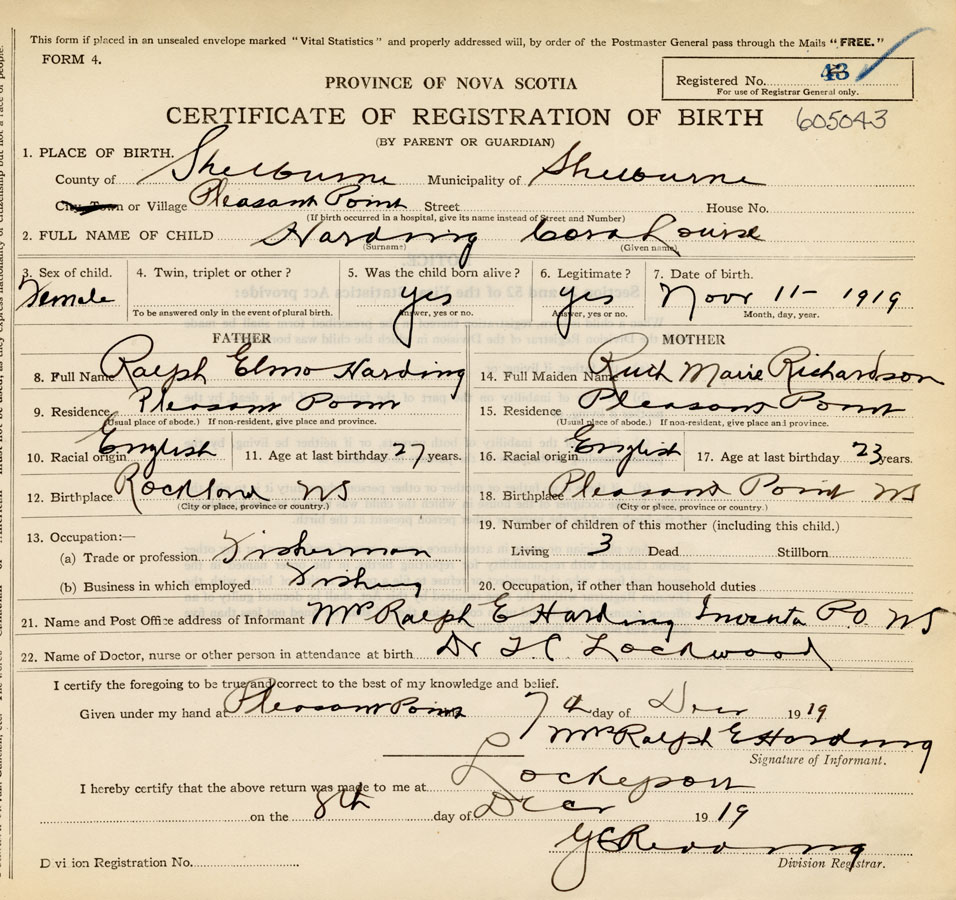 This form if placed in an unsealed envelope marked "Vital Statistics" and properly addressed will, by order of the Postmaster General pass through the Mails "FREE."
FORM 4.
PROVINCE OF NOVA SCOTIA
Registered No. 43
For use of Registrar General only.
CERTIFICATE OF REGISTRATION OF BIRTH 605043
(BY PARENT OR GUARDIAN)
1. PLACE OF BIRTH.
County of Shelburne Municipality of Shelburne
City, Town or Village Pleasant Point Street House No.
(If birth occurred in a hospital, give its name instead of Street and Number)
2. FULL NAME OF CHILD Harding Cora Louise
(Surname) (Given name)
3. Sex of child. 4. Twin, triplet or other? 5. Was the child born alive? 6. Legitimate? 7. Date of birth.
Female yes yes Novr 11 - 1919
To be answered only in the event of plural birth. Answer, yes or no. Answer, yes or no. Month, day, year.
FATHER MOTHER
8. Full Name Ralph Elmo Harding 14. Full Maiden Name Ruth Marie Richardson
9. Residence Pleasant Point 15. Residence Pleasant Point
(Usual place of abode.) If non-resident, give place and province. (Usual place of abode.) If non-resident, give place and province.
10. Racial origin English 11. Age at last birthday 27 years. 16. Racial origin English 17. Age at last birthday 23 years.
12. Birthplace Rockland NS 18. Birthplace Pleasant Point NS
(City or place, province or country.) (City or place, province or country.)
19. Number of children of this mother (including this child.)
13. Occupation:—
(a) Trade or profession Fisherman Living 3 Dead Stillborn
(b) Business in which employed Fishing 20. Occupation, if other than household duties
21. Name and Post Office address of Informant Mrs Ralph E Harding P.O. NS
22. Name of Doctor, nurse or other person in attendance at birth Dr Lockwood
I certify the foregoing to be true and correct to the best of my knowledge and belief.
Given under my hand at Pleasant Point 7th day of Decr 1919
Mrs Ralph E Harding
Signature of Informant.
I hereby certify that the above return was made to me at Lockeport
on the 8th day of Decr 1919
Division Registrar.
D vi ion Registration No.